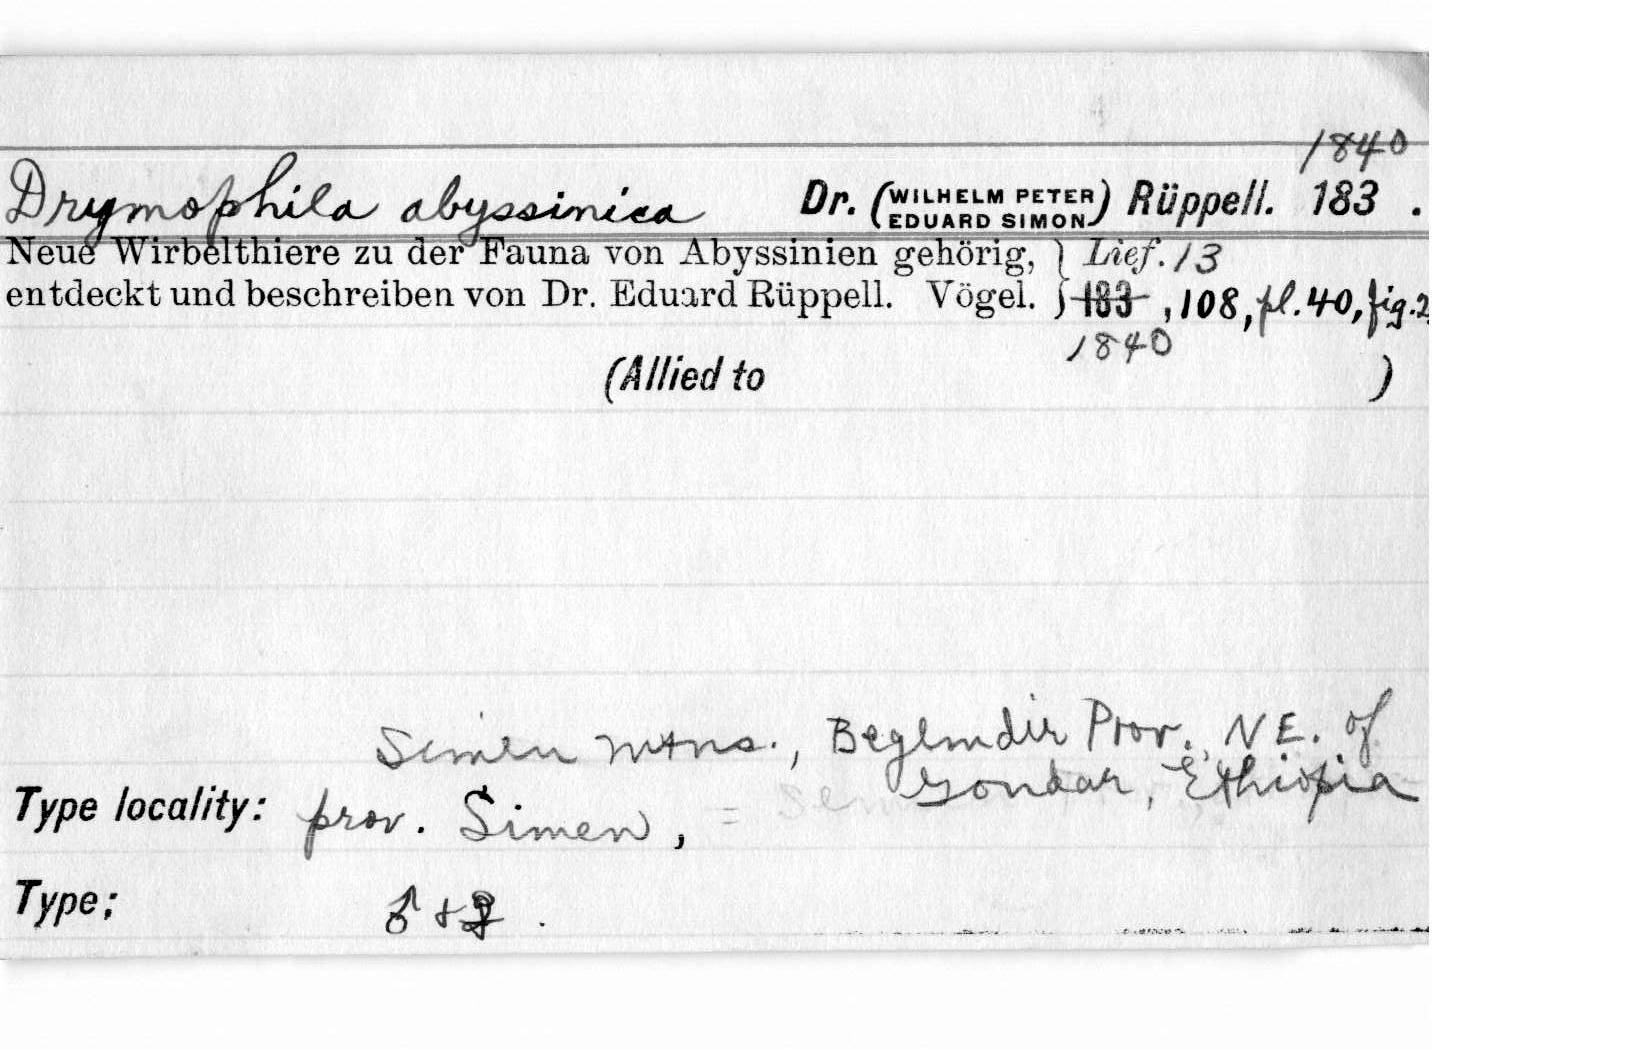 1840
Drymophila abyssinica Dr. (WILHELM PETER EDUARD SIMON) Rüppell. 183 .
Neue Wirbelthiere zu der Fauna von Abyssinien gehörig, } Lief. 13
entdeckt und beschreiben von Dr. Eduard Rüppell. Vögel. } 183 , 108, pl. 40, fig. 2,
1840
(Allied to )
Simen mtns., Begemdir Prov., NE. of
Gondar, Ethiopia
Type locality: prov. Simen, =
Type; ♂ + ♀ .